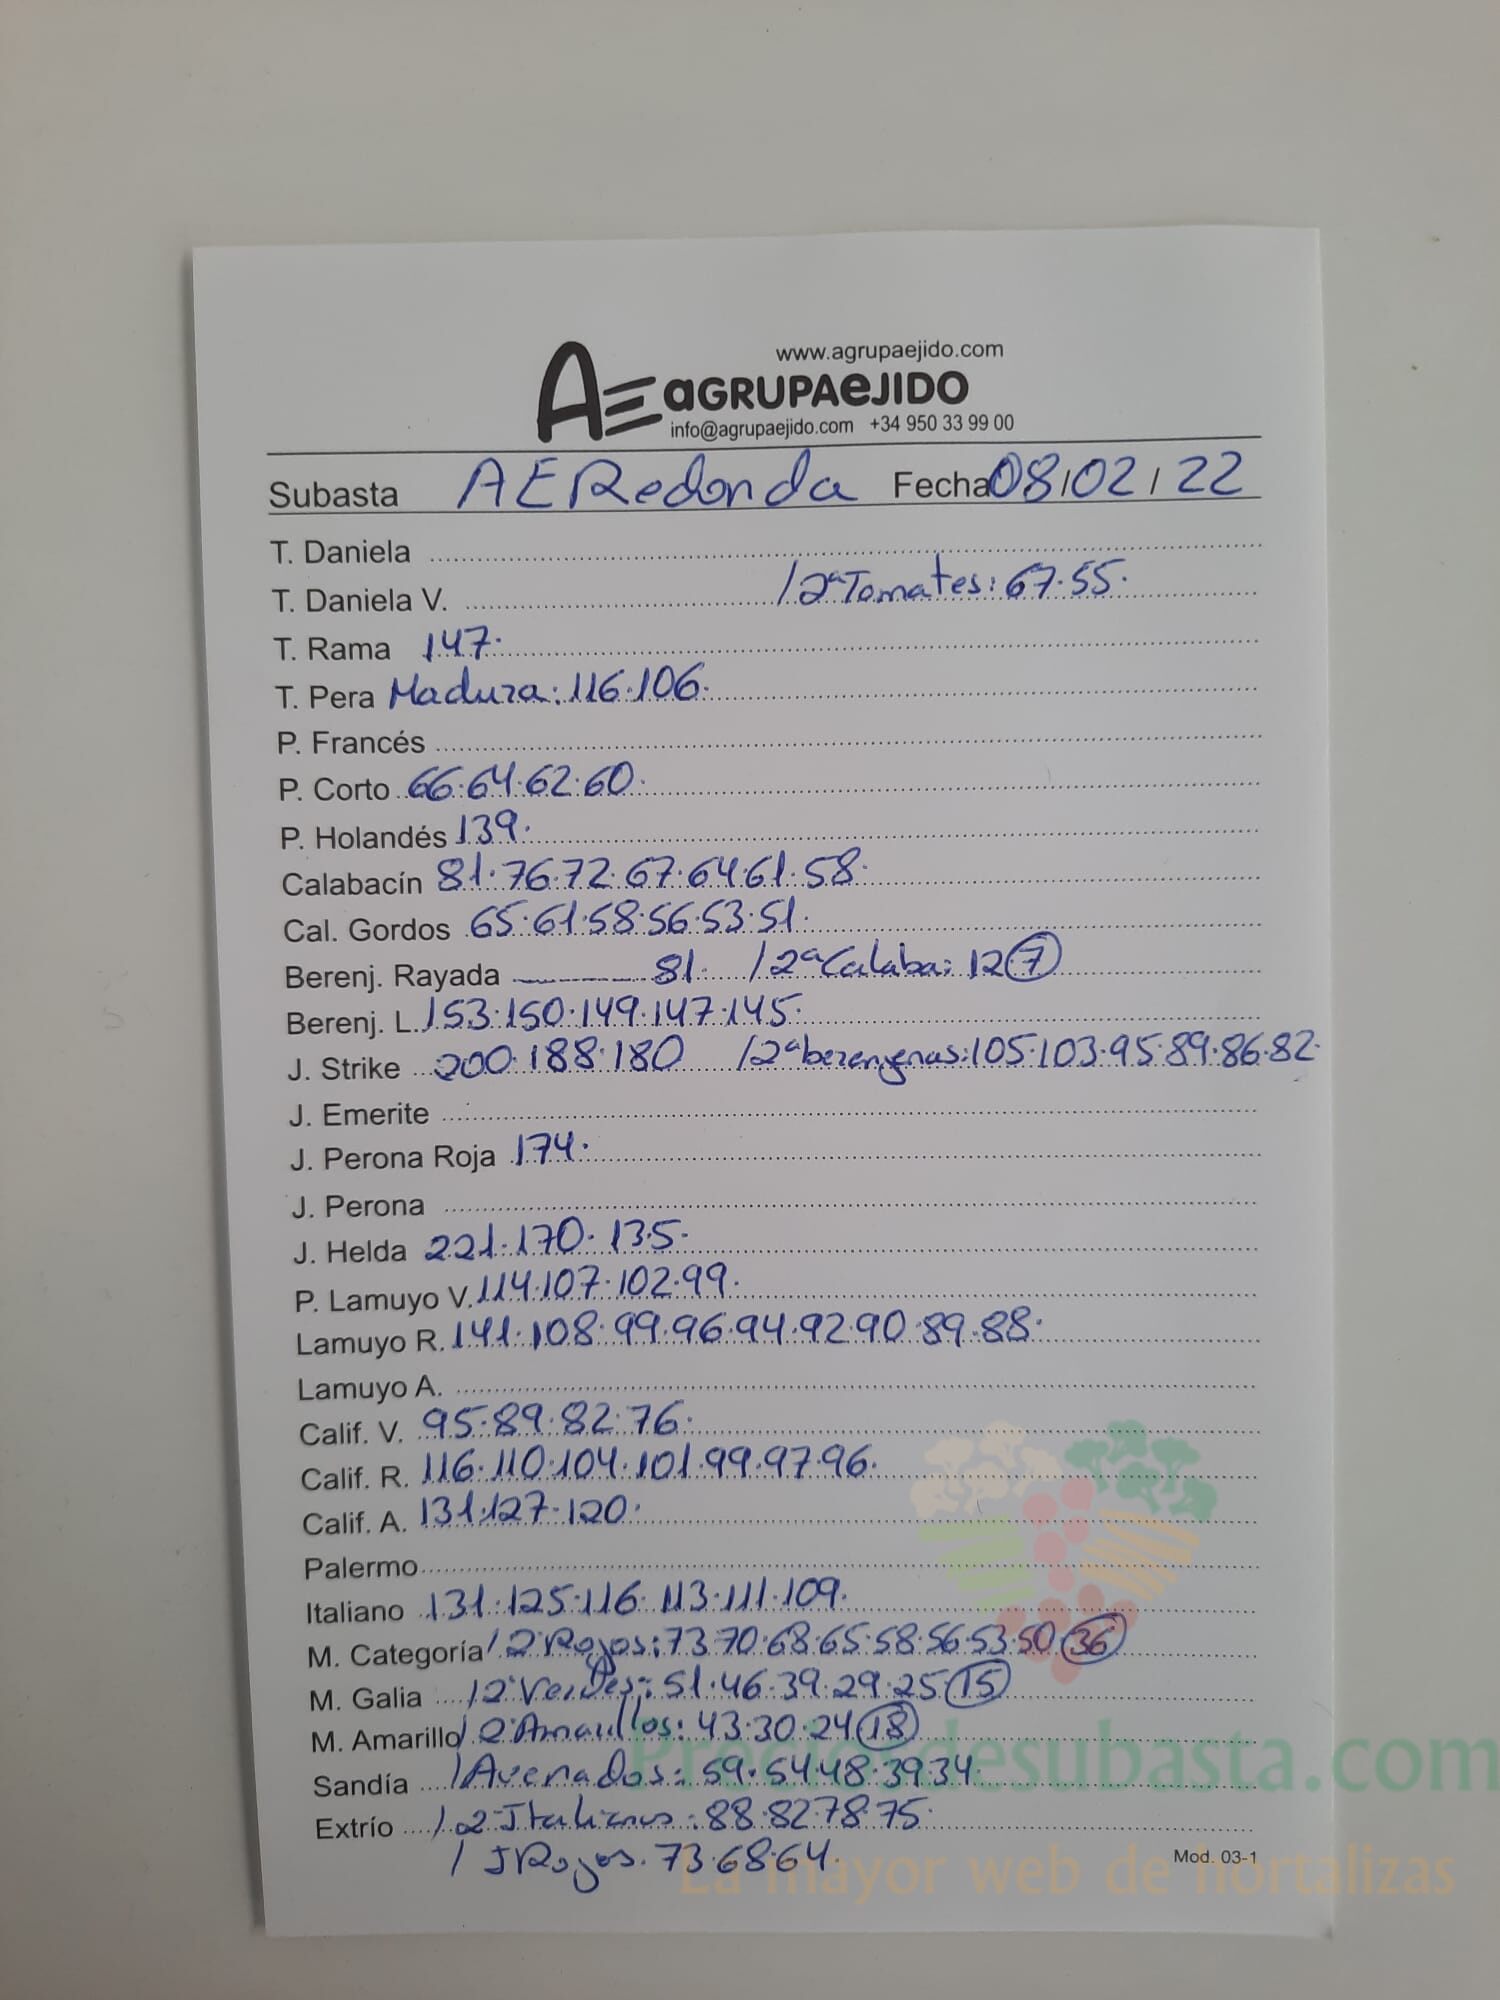 www.agrupaejido.com
AE aGRUPAeJIDO
info@agrupaejido.com +34 950 33 99 00
Subasta AERedonda Fecha 08/02/22
T. Daniela
T. Daniela V. /2ªTomates: 67.55.
T. Rama 147.
T. Pera Madura: 116.106.
P. Francés
P. Corto 66.64.62.60.
P. Holandés 139.
Calabacín 81.76.72.67.64.61.58.
Cal. Gordos 65.61.58.56.53.51.
Berenj. Rayada 81. /2ªCalaba: 12 7
Berenj. L. 153.150.149.147.145.
J. Strike 200.188.180 /2ªberenjenas: 105.103.95.89.86.82.
J. Emerite
J. Perona Roja 174.
J. Perona
J. Helda 221.170.135.
P. Lamuyo V. 114.107.102.99.
Lamuyo R. 141.108.99.96.94.92.90.89.88.
Lamuyo A.
Calif. V. 95.89.82.76.
Calif. R. 116.110.104.101.99.97.96.
Calif. A. 131.127.120.
Palermo
Italiano 131.125.116.113.111.109.
M. Categoría /2ªRojos: 73.70.68.65.58.56.53.50 36
M. Galia /2ªVerdes: 51.46.39.29.25 15
M. Amarillo /2ªAmarillos: 43.30.24 18
Sandía /Asenados: 59.54.48.39.34.
Extrío /2-Italianos: 88.82.78.75.
/JRojos. 73.68.64.
Mod. 03-1
Preciosdesubasta.com
La mayor web de hortalizas